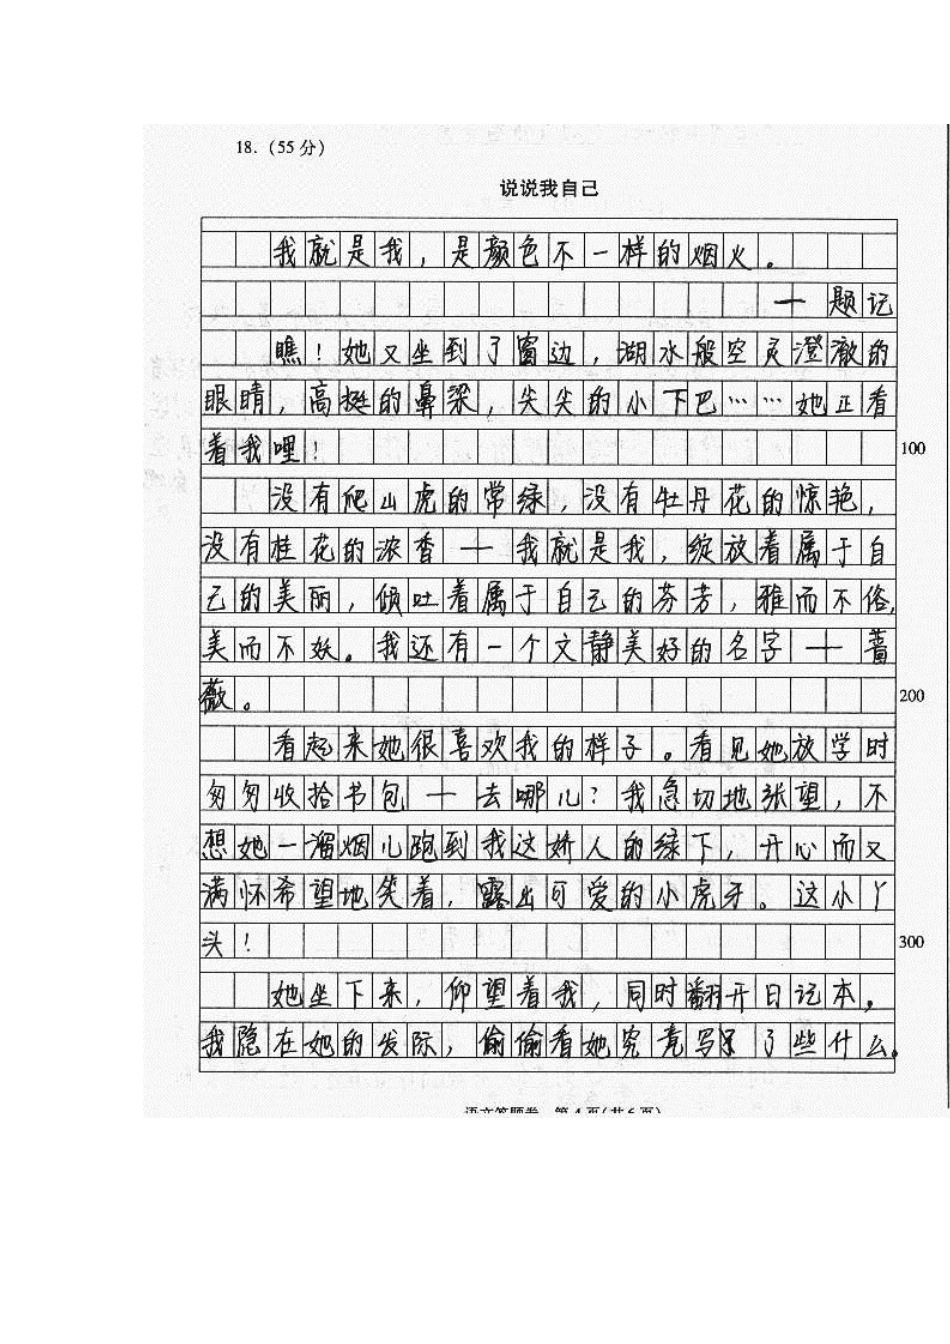 18.(55分)
说说我自己
我就是我，是颜色不一样的烟火。
——题记
瞧！她又坐到了窗边，湖水般空灵澄澈的
眼睛，高挺的鼻梁，尖尖的小下巴……她正看
着我哩！
100
没有爬山虎的常绿，没有牡丹花的惊艳，
没有桂花的浓香——我就是我，绽放着属于自
己的美丽，倾吐着属于自己的芬芳，雅而不俗，
美而不妖。我还有一个文静美好的名字——蔷
薇。
200
看起来她很喜欢我的样子。看见她放学时
匆匆收拾书包——去哪儿？我急切地张望，不
想她一溜烟儿跑到我这娇人的绿下，开心而又
满怀希望地笑着，露出可爱的小虎牙。这小丫
头！
300
她坐下来，仰望着我，同时翻开日记本。
我隐在她的发际，偷偷看她究竟写了些什么。
语文答题卷 第4页(共6页)